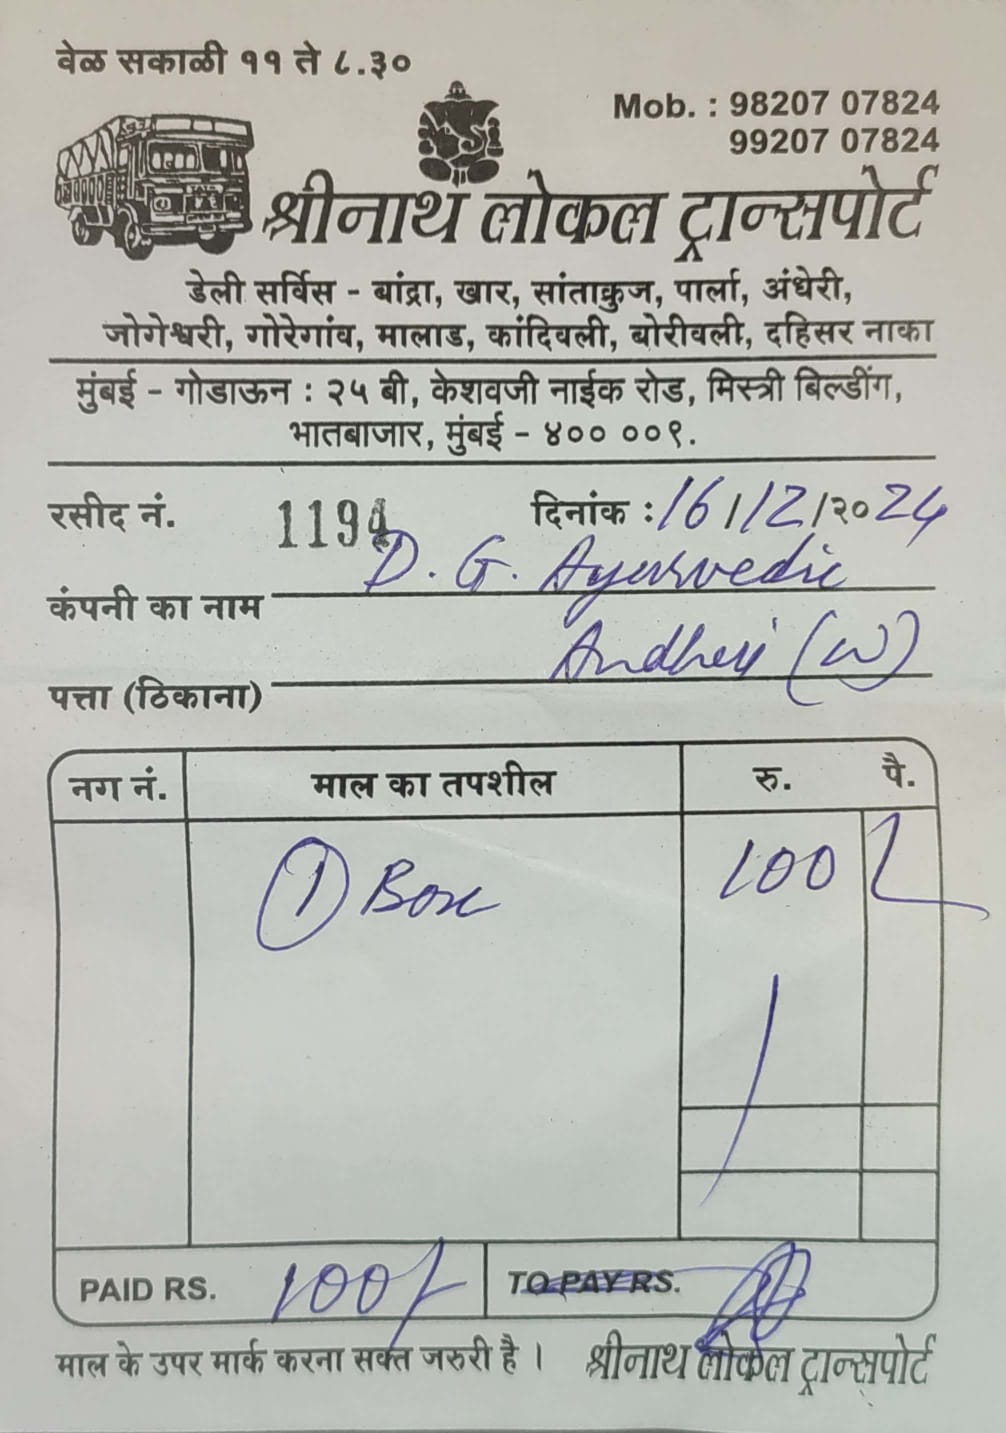 वेळ सकाळी ११ ते ८.३०
Mob. : 98207 07824
99207 07824
श्रीनाथ लोकल ट्रान्सपोर्ट
डेली सर्विस - बांद्रा, खार, सांताक्रुज, पार्ला, अंधेरी,
जोगेश्वरी, गोरेगांव, मालाड, कांदिवली, बोरीवली, दहिसर नाका
मुंबई - गोडाऊन : २५ बी, केशवजी नाईक रोड, मिस्त्री बिल्डींग,
भातबाजार, मुंबई - ४०० ००९.
रसीद नं. 1194 दिनांक : 16/12/२०24
कंपनी का नाम D. G. Ayurvedic
पत्ता (ठिकाना) Andheri (W)
नग नं. माल का तपशील रु. पै.
1 Box 100/-
PAID RS. 100/- TO PAY RS.
माल के उपर मार्क करना सक्त जरुरी है । श्रीनाथ लोकल ट्रान्सपोर्ट